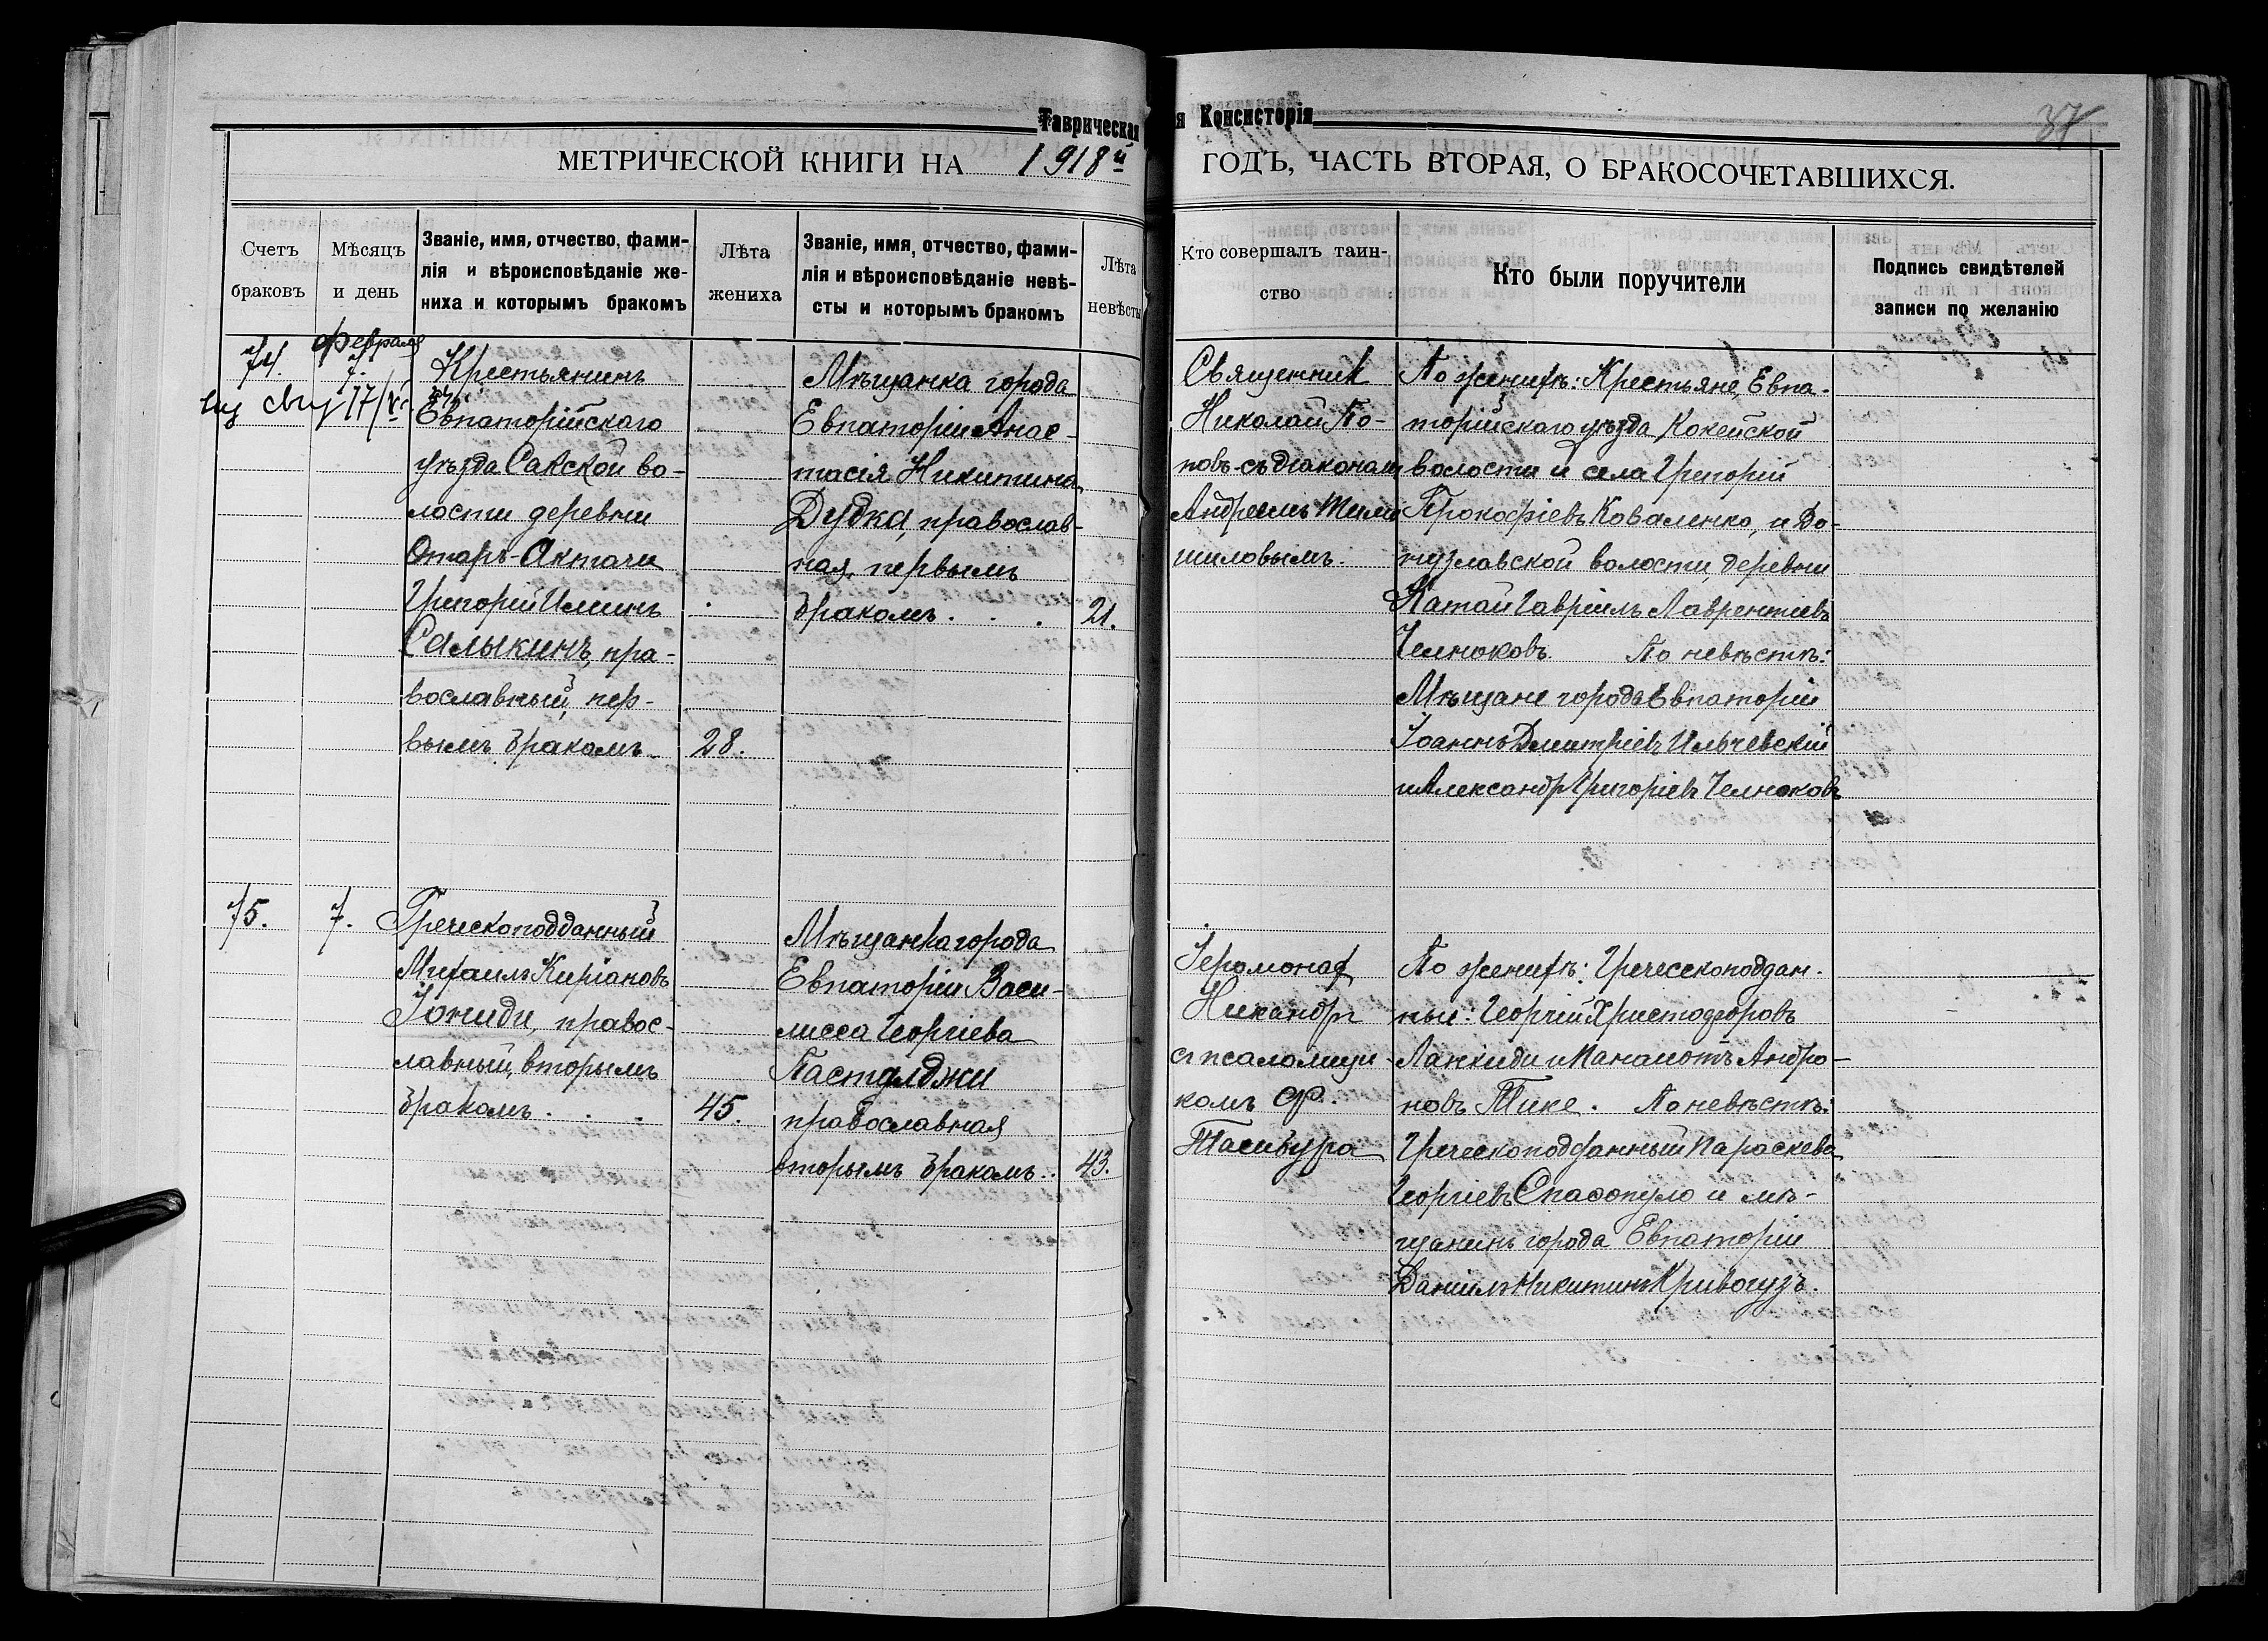 Таврическая
я Консисторія
37
МЕТРИЧЕСКОЙ КНИГИ НА 1918й
ГОДЪ, ЧАСТЬ ВТОРАЯ, О БРАКОСОЧЕТАВШИХСЯ.
Счетъ
браковъ
Мѣсяцъ
и день
Званіе, имя, отчество, фами-
лія и вѣроисповѣданіе же-
ниха и которымъ бракомъ
Лѣта
жениха
Званіе, имя, отчество, фами-
лія и вѣроисповѣданіе невѣ-
сты и которымъ бракомъ
Лѣта
невѣсты
Кто совершалъ таин-
ство
Кто были поручители
Подпись свидѣтелей
записи по желанію
74.
Февраля
7.
Крестьянинъ
Евпаторійскаго
уѣзда Сакской во-
лости деревни
Отаръ-Актачи
Григорій Илиинъ
Салыкинъ, пра-
вославный, пер-
вымъ бракомъ
28.
Мѣщанка города
Евпаторіи Анас-
тасія Никитина
Дудка, православ-
ная, первымъ
бракомъ . . .
21.
Священник
Николай По-
повъ съ діаконом
Андреемъ
шиловымъ.
По женихѣ: Крестьяне, Евпа-
торійскаго уѣзда Кокейской
волости и села Григорій
Прокофіевъ Коваленко, и До-
нузлавской волости, деревни
Катай Гавріилъ Лаврентіевъ
Челноковъ По невѣстѣ:
Мѣщане города Евпаторіи
Іоаннъ Димитріевъ Ильчевскій
и Александръ Григоріевъ Челноковъ
75.
7.
Греческоподданный
Михаилъ Киріаковъ
Іониди, правос-
лавный, вторымъ
бракомъ . . .
45.
Мѣщанка города
Евпаторіи Васи-
лисса Георгіева
Пастулджи
православная
вторымъ бракомъ . .
43.
Іеромонах
Никандръ
съ псаломщи-
комъ Ф.
По женихѣ: Греческоподдан-
ные: Георгій Христофоровъ
Лапкиди и Манаиотъ Андро-
новъ Пике. По невѣстѣ:
Греческоподданный Параскева
Георгіевъ Спасопуло и мѣ-
щанинъ города Евпаторіи
Даніилъ Никитинъ Кривогузъ.